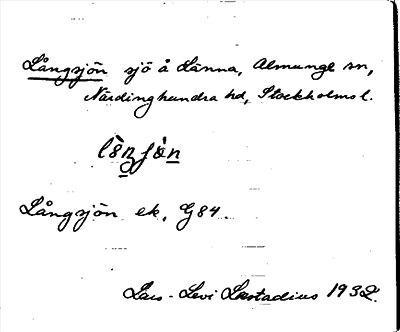 Långsjön sjö å Länna, Almunge sn,
Närdinghundra hd, Stockholms l.
Långsjön ek, G84.
Lars-Levi Læstadius 1932.